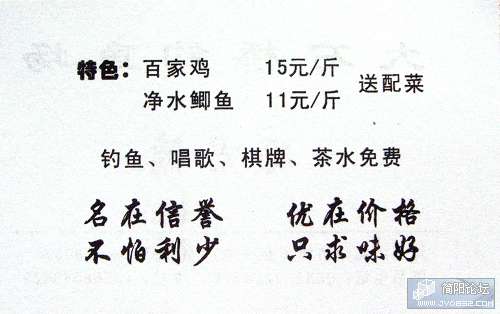 特色：百家鸡 15元/斤 送配菜
净水鲫鱼 11元/斤
钓鱼、唱歌、棋牌、茶水免费
名在信誉 优在价格
不怕利少 只求味好
简阳论坛
www.JY0832.com